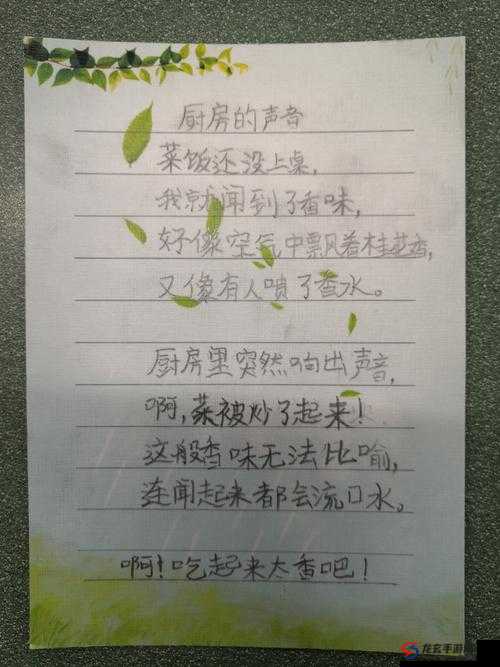 厨房的声音
菜饭还没上桌，
我就闻到了香味，
好像空气中飘着桂花香，
又像有人喷了香水。
厨房里突然响出声音，
啊，菜被炒了起来！
这般香味无法比喻，
连闻起来都会流口水。
啊！吃起来太香吧！
龙玄手游网